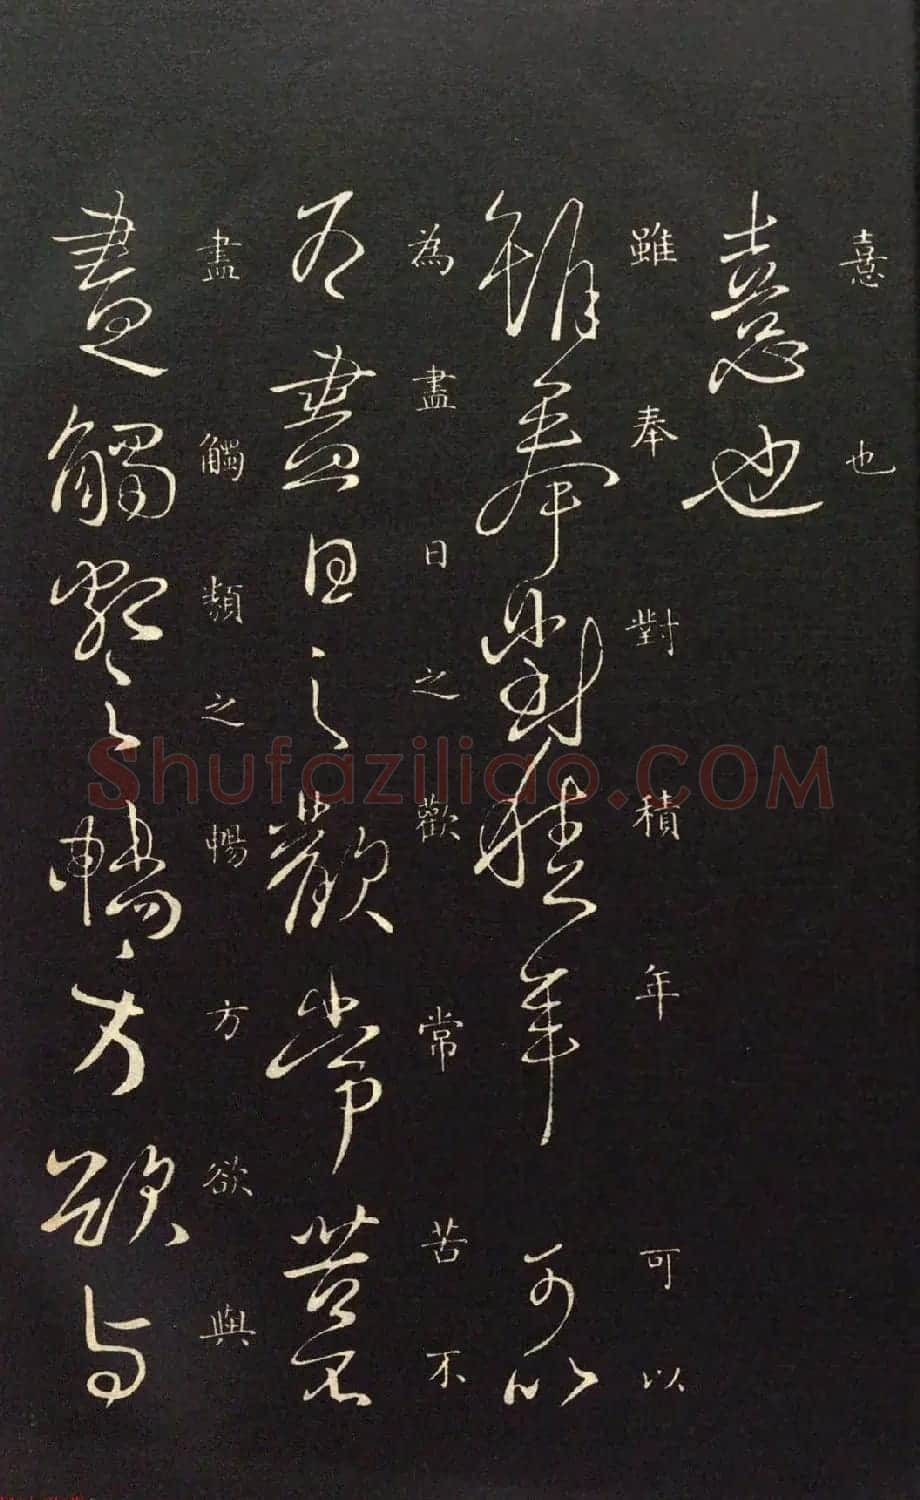 憙也
憙也
雖奉對積年可以
雖奉對積年可以
為盡日之歡常苦不
為盡日之歡常苦不
盡觸類之暢方欲與
盡觸類之暢方欲與
Shufaziliao.COM